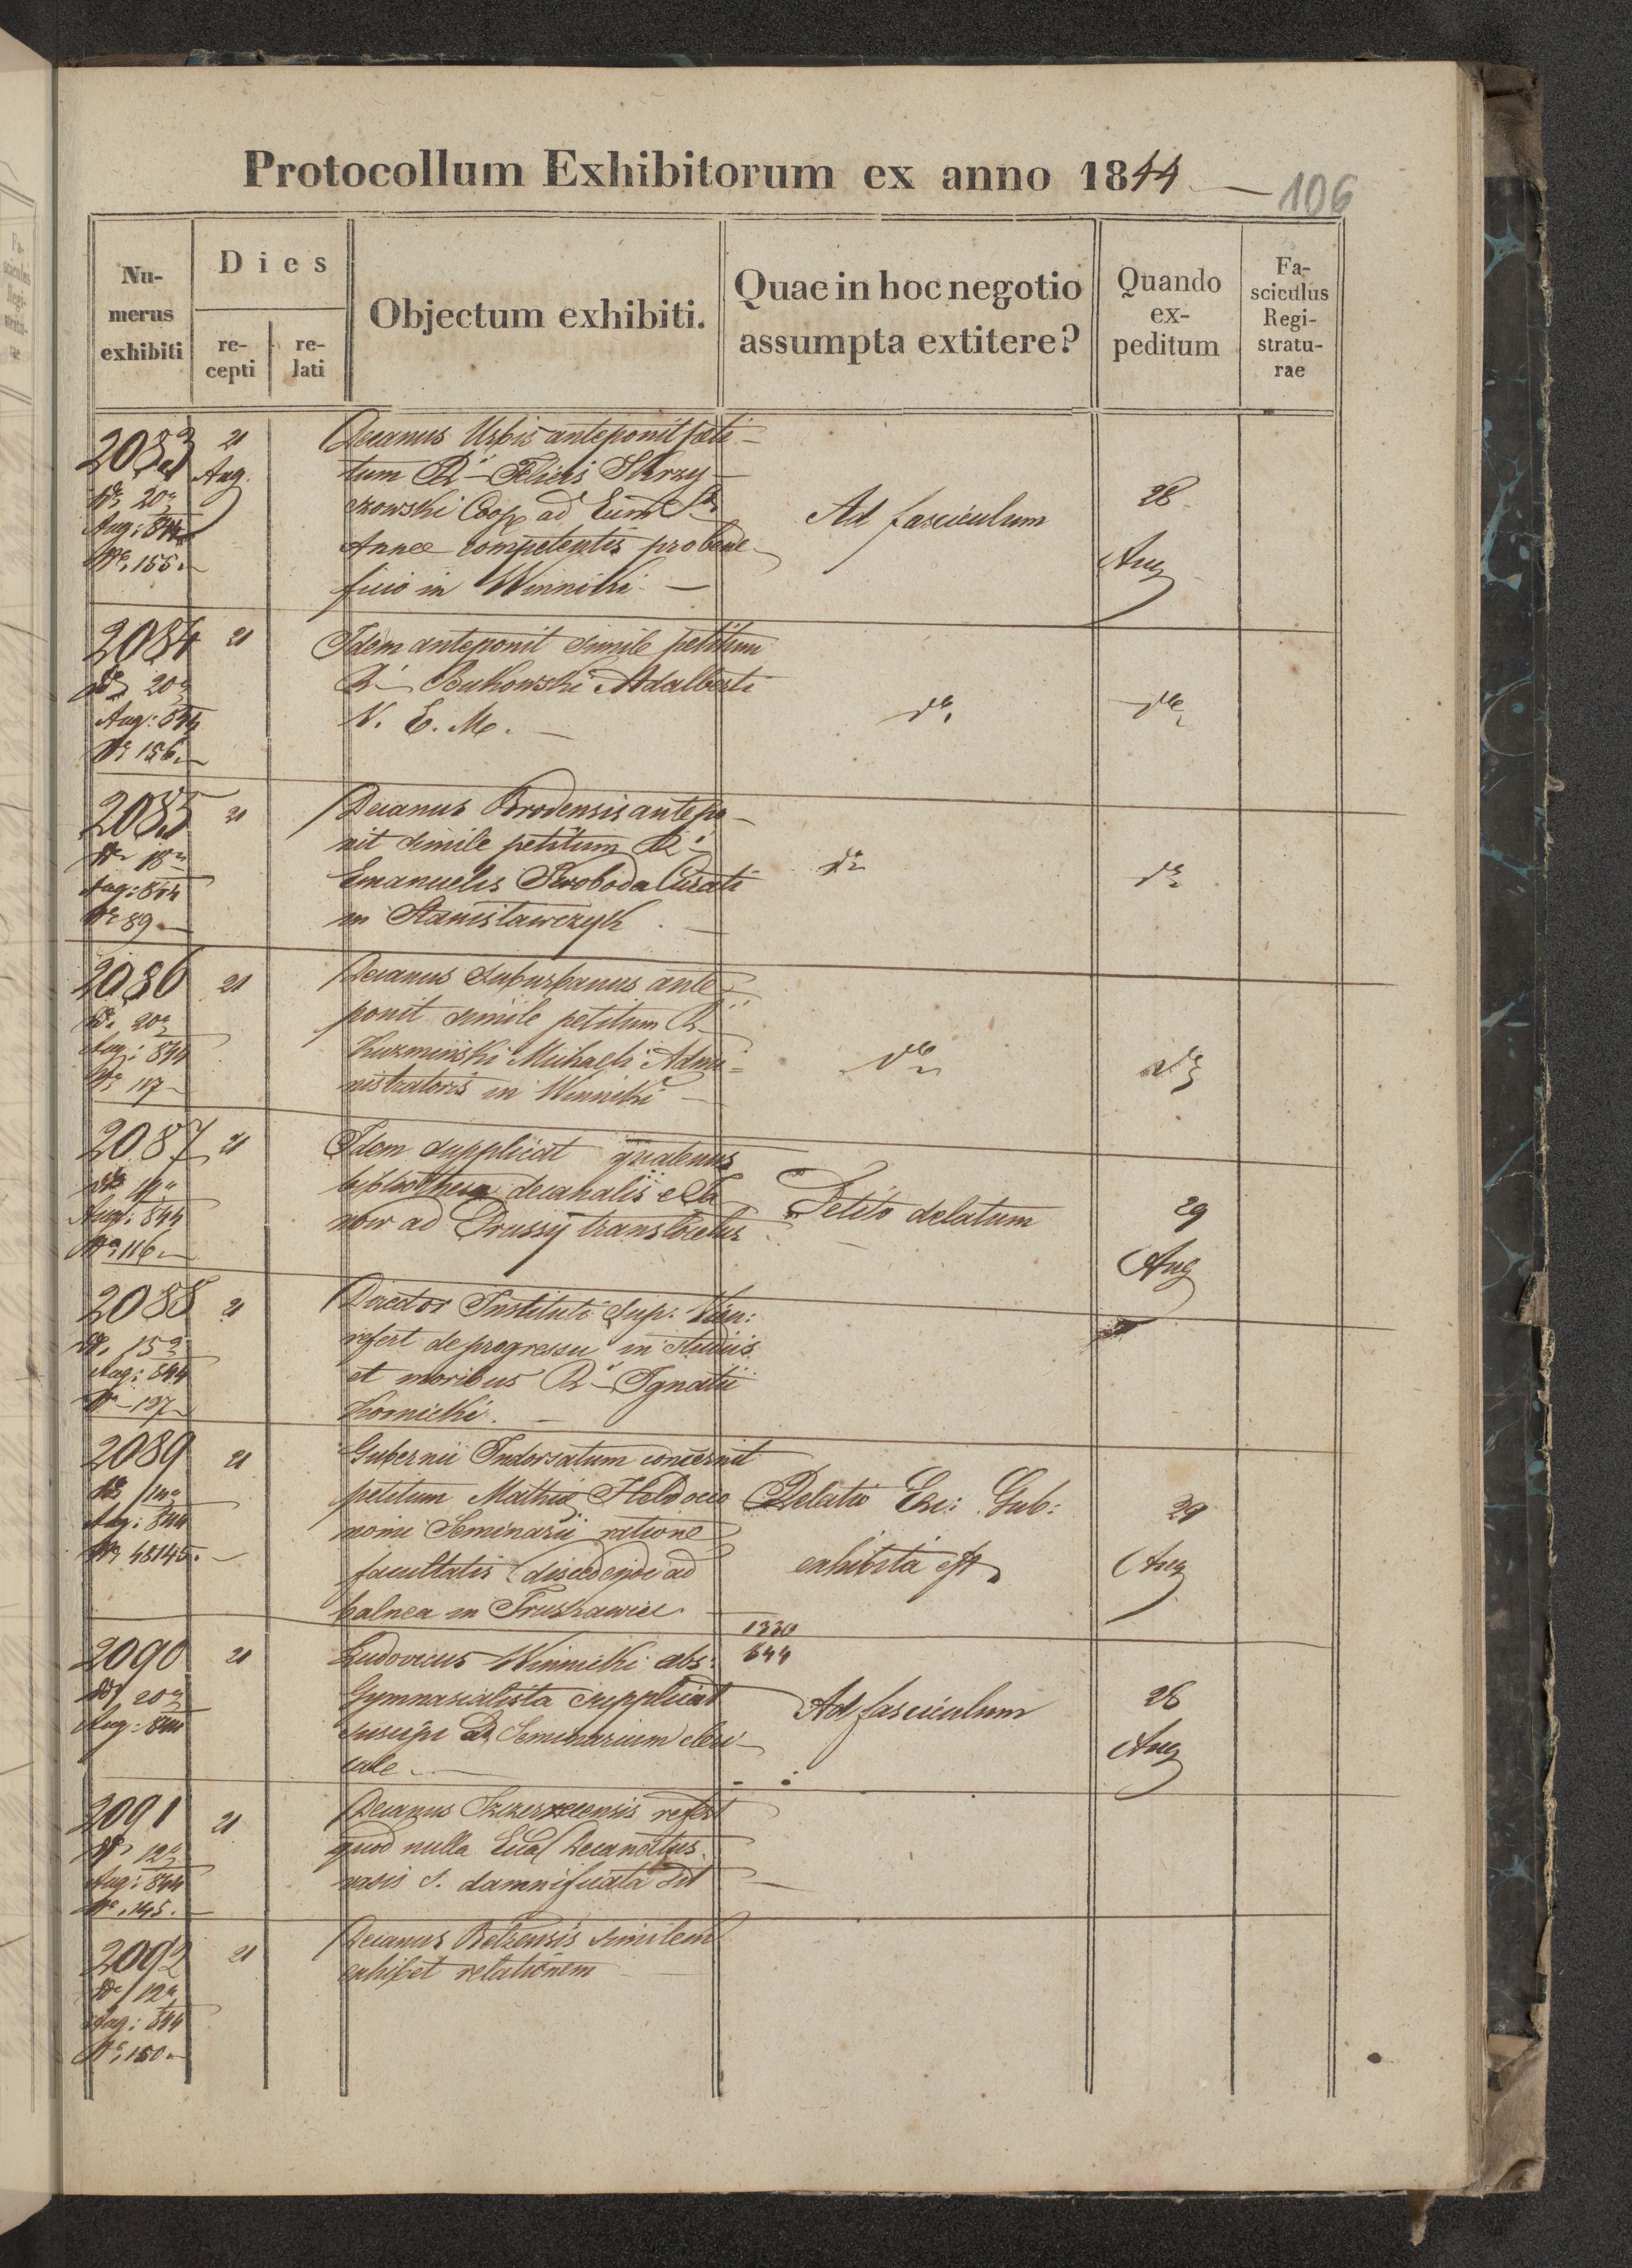 Protocollum Exhibitorum ex anno 1844
106
Numerus exhibiti
Dies
recepti
relati
Objectum exhibiti.
Quae in hoc negotio assumpta extitere?
Quando expeditum
Fasciculus Registraturae
2083
21
Aug.
20
Aug: 844
Nº 155.
Decanus Urbis anteponit peti-
tum Felicis Skrzy-
Coop ad
Annae competentis pro bene-
ficio in Winniki
Ad fasciculum
28
Aug
2084
21
20
Aug: 844
Nº 156.
Idem anteponit simile petitum
Bukowski Adalberti
V. E. M.
dto
dto
2085
21
18
Aug: 844
Nº 89
Decanus Brodensis antepo-
nit simile petitum R
Emanuelis Swoboda Curati
in Stanisławczyk
dto
dto
2086
21
20
Aug: 844
Nº 117
Decanus Suburbanus ante-
ponit simile petitum R
Kuzminski Michaeli Admi-
nistratoris in Winniki
dto
dto
2087
21
Aug: 844
Nº 116.
Idem supplicat quatenus
bibliotheca decanalis e
now ad Prussy translocetur
Petito delatum
29
Aug
2088
21
15
Aug: 844
Nº 197
Director Instituti Sup. Vien:
refert de progressu in studiis
et moribus R Ignatii
Kornicki.
2089
21
14
Aug: 844
Nº 48145.
Gubernii Indorsatum concernit
petitum Mathiae Held oeco
nomi Seminarii ratione
facultatis discedendi ad
balnea in Truskawiec
Relatio Exc: Gub:
exhibita est
29
Aug
2090
21
20
Aug: 844
Ludovicus Winnicki abs:
Gymnasialista supplicat
suscipi ad Seminarium cleri-
cale
1330
844
Ad fasciculum
28
Aug
2091
21
12
Aug: 844
Nº 145.
Decanus Szczerzecensis refert
quod nulla Eccl Decanatus
sui damnificata sit
2092
21
12
Aug: 844
Nº 150.
Decanus Belzensis similem
exhibet relationem